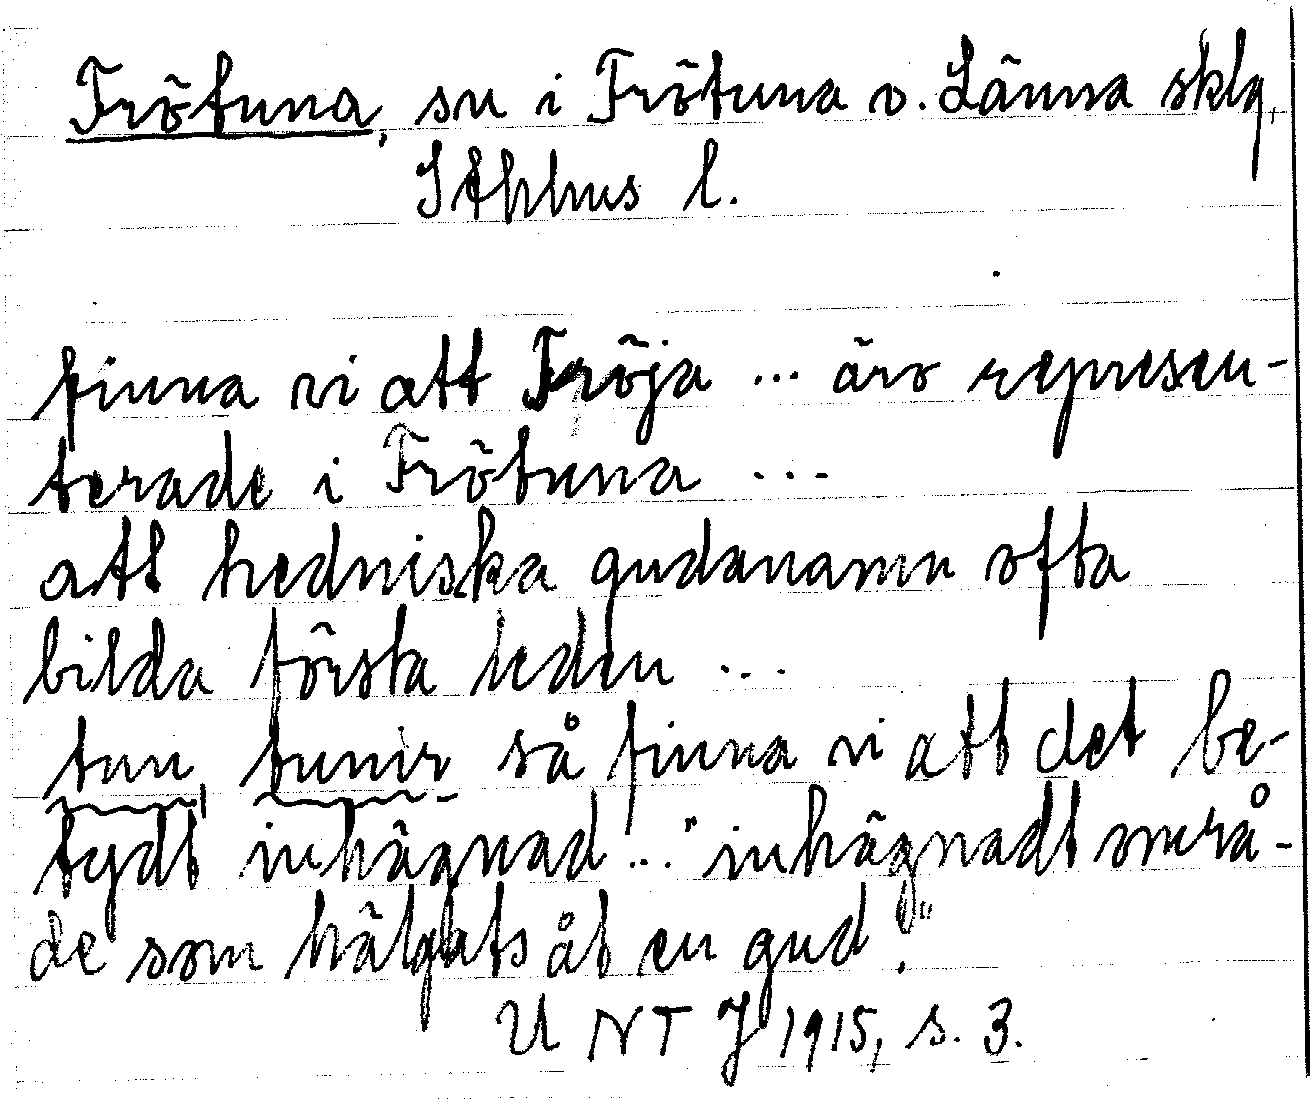 Frötuna, sn i Frötuna o. Länna sklg,
Sthhus l.
finna vi att Fröja ... äro represen-
terade i Frötuna ...
att hedniska gudanamn ofta
bilda första leden ...
tun, tunir så finna vi att det be-
tydt inhägnad ... "inhägnadt områ-
de som hälgats åt en gud".
U N T J 1915, s. 3.